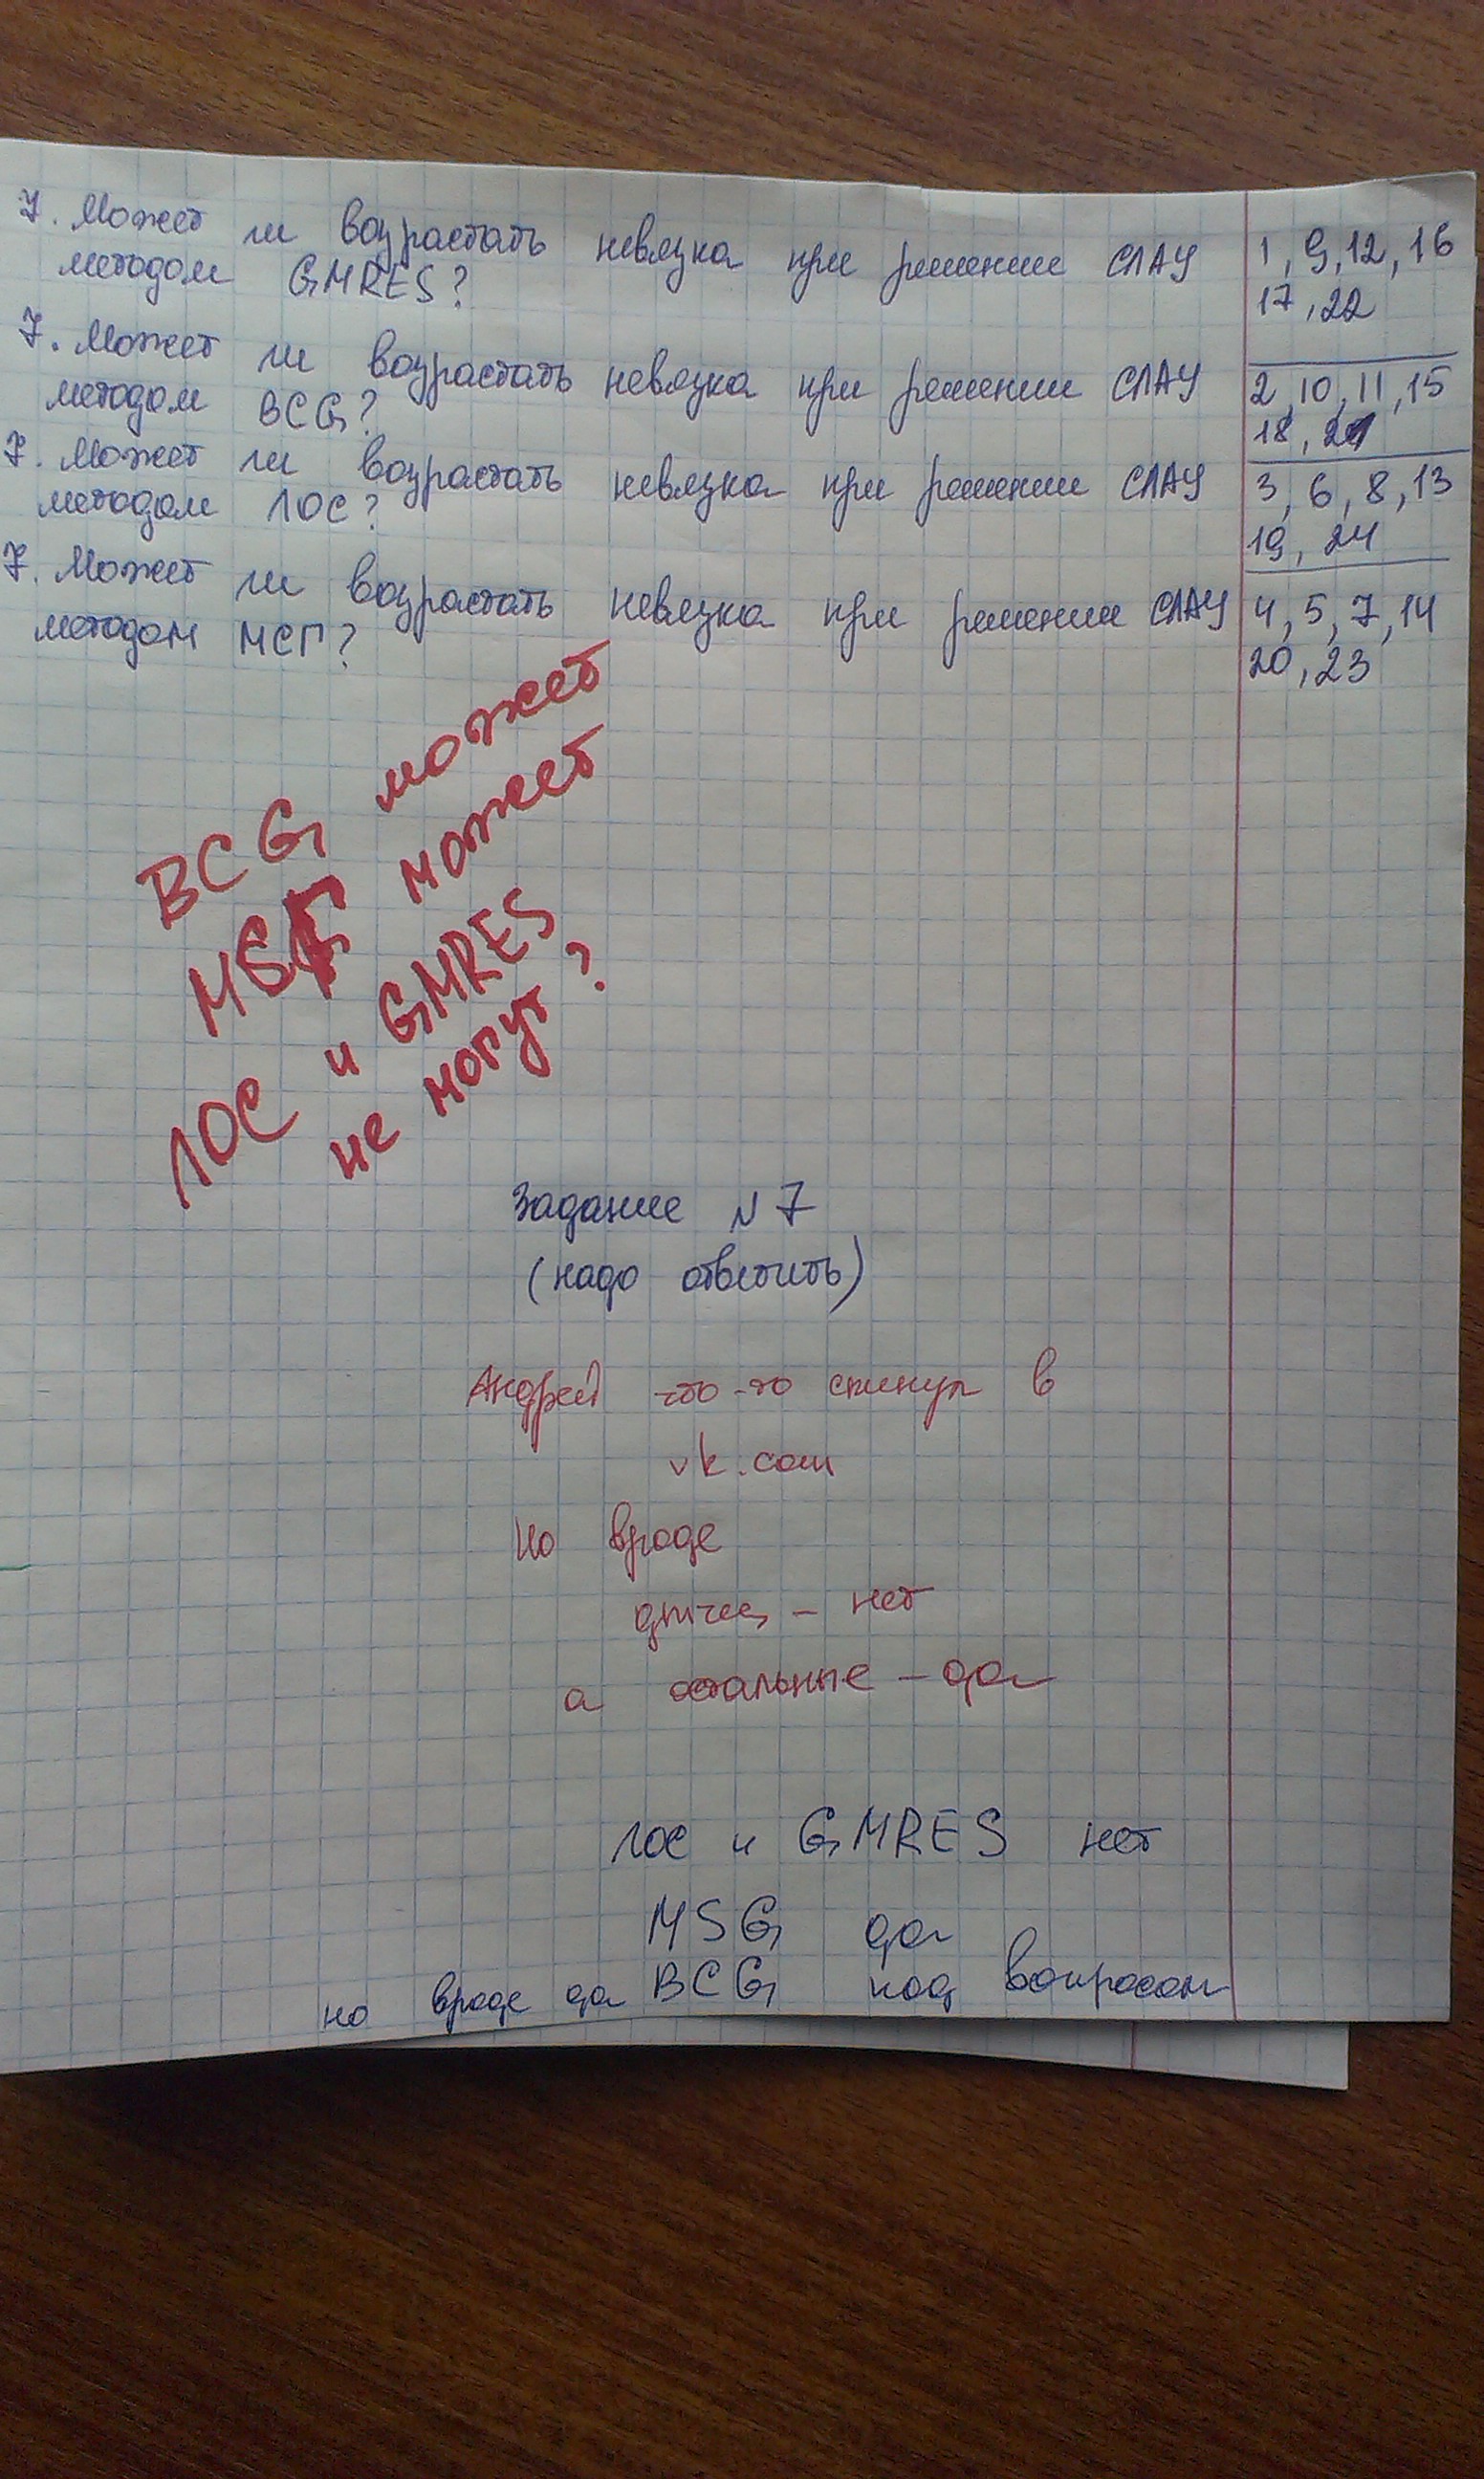 7. Может ли возрастать невязка при решении СЛАУ
методом GMRES?
1, 9, 12, 16
17, 22
7. Может ли возрастать невязка при решении СЛАУ
методом BCG?
2, 10, 11, 15
18, 21
7. Может ли возрастать невязка при решении СЛАУ
методом ЛОС?
3, 6, 8, 13
19, 24
7. Может ли возрастать невязка при решении СЛАУ
методом МСГ?
4, 5, 7, 14
20, 23
BCG может
MSG может
ЛОС и GMRES
не могут?
Задание N 7
(надо ответить)
Андрей что-то скинул в
vk.com
Но вроде
- нет
а остальные - да
ЛОС и GMRES нет
MSG да
BCG под вопросом
но вроде да